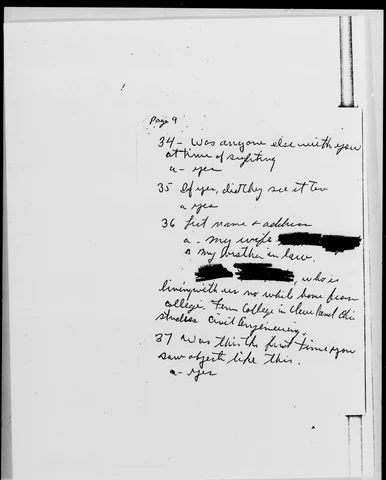 Page 9
34- Was anyone else with you
at time of sighting
a- yes
35 If yes, did they see it too
a yes
36 List name & address
a. my wife
& my brother in law.
who is
living with us no while home from
college, Fenn College in Cleveland Ohi
studies Civil Engineering.
37 Was this the first time you
saw objects like this.
a- yes